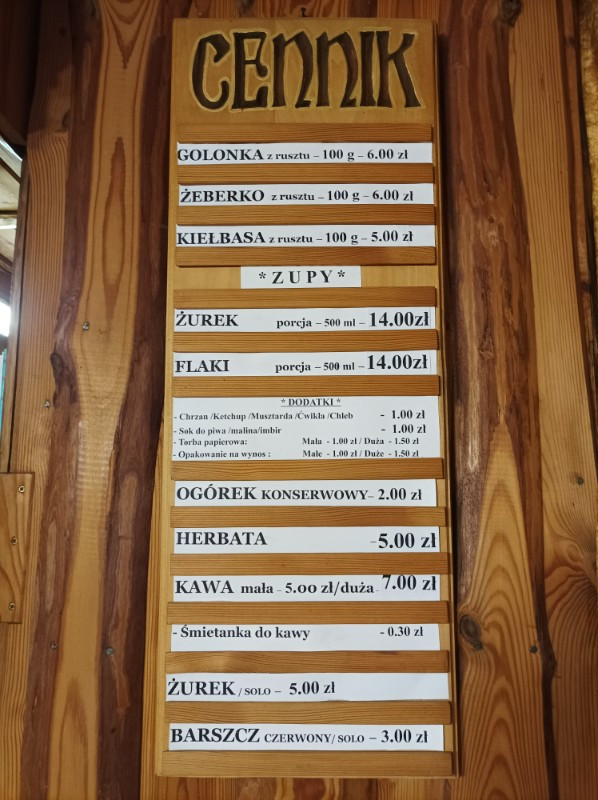 CENNIK
GOLONKA z rusztu – 100 g – 6.00 zł
ŻEBERKO z rusztu – 100 g – 6.00 zł
KIEŁBASA z rusztu – 100 g – 5.00 zł
* Z U P Y *
ŻUREK porcja – 500 ml – 14.00zł
FLAKI porcja – 500 ml – 14.00zł
* DODATKI *
- Chrzan /Ketchup /Musztarda /Ćwikła /Chleb - 1.00 zł
- Sok do piwa /malina/imbir - 1.00 zł
- Torba papierowa: Mała - 1.00 zł / Duża - 1.50 zł
- Opakowanie na wynos : Małe - 1.00 zł / Duże - 1.50 zł
OGÓREK KONSERWOWY– 2.00 zł
HERBATA –5.00 zł
KAWA mała – 5.00 zł/duża– 7.00 zł
- Śmietanka do kawy - 0.30 zł
ŻUREK / SOLO – 5.00 zł
BARSZCZ CZERWONY/ SOLO – 3.00 zł